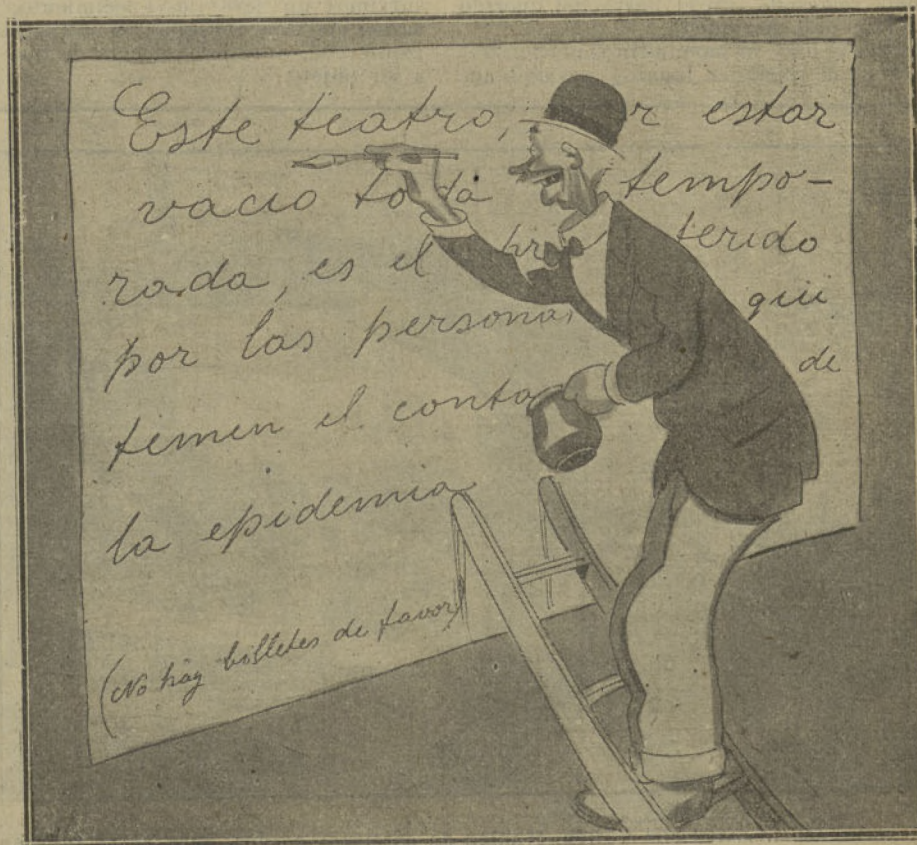 Este teatro, r estar
vacio toda tempo-
rada, es el pr terido
por las personas que
temen el conta de
la epidemia
(No hay billetes de favor)